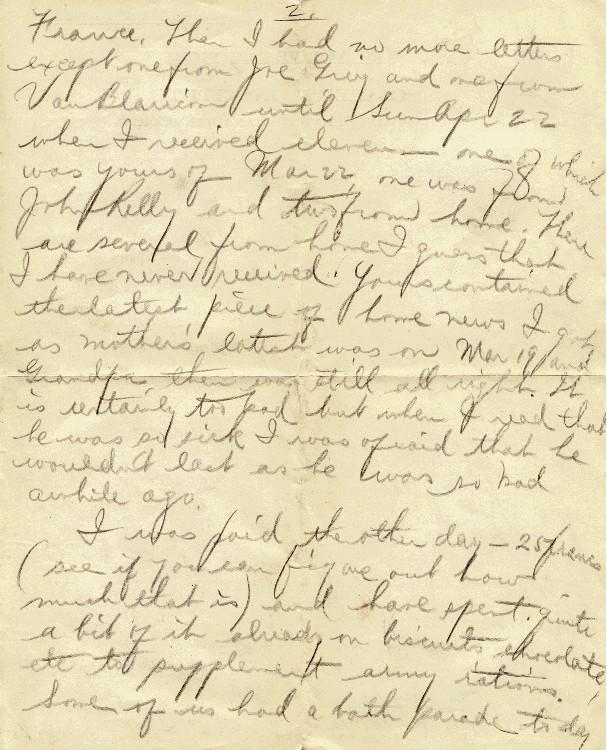 2.
France. Then I had no more letters
except one from Joe Grig and one from
Van Blaricom until Sun Apr 22
when I received eleven — one of which
was yours of Mar 22, one was from
John Kelly and two from home. There
are several from home I guess that
I have never received. Yours contained
the latest piece of home news I got
as mother's latest was on Mar 19 and
Grandpa then was still all right. It
is certainly too bad but when I read that
he was so sick I was afraid that he
wouldn't last as he was so bad
awhile ago.
I was paid the other day — 25 francs
(see if you can figure out how
much that is) and have spent quite
a bit of it already on biscuits chocolate,
etc to supplement army rations.
Some of us had a bath parade today